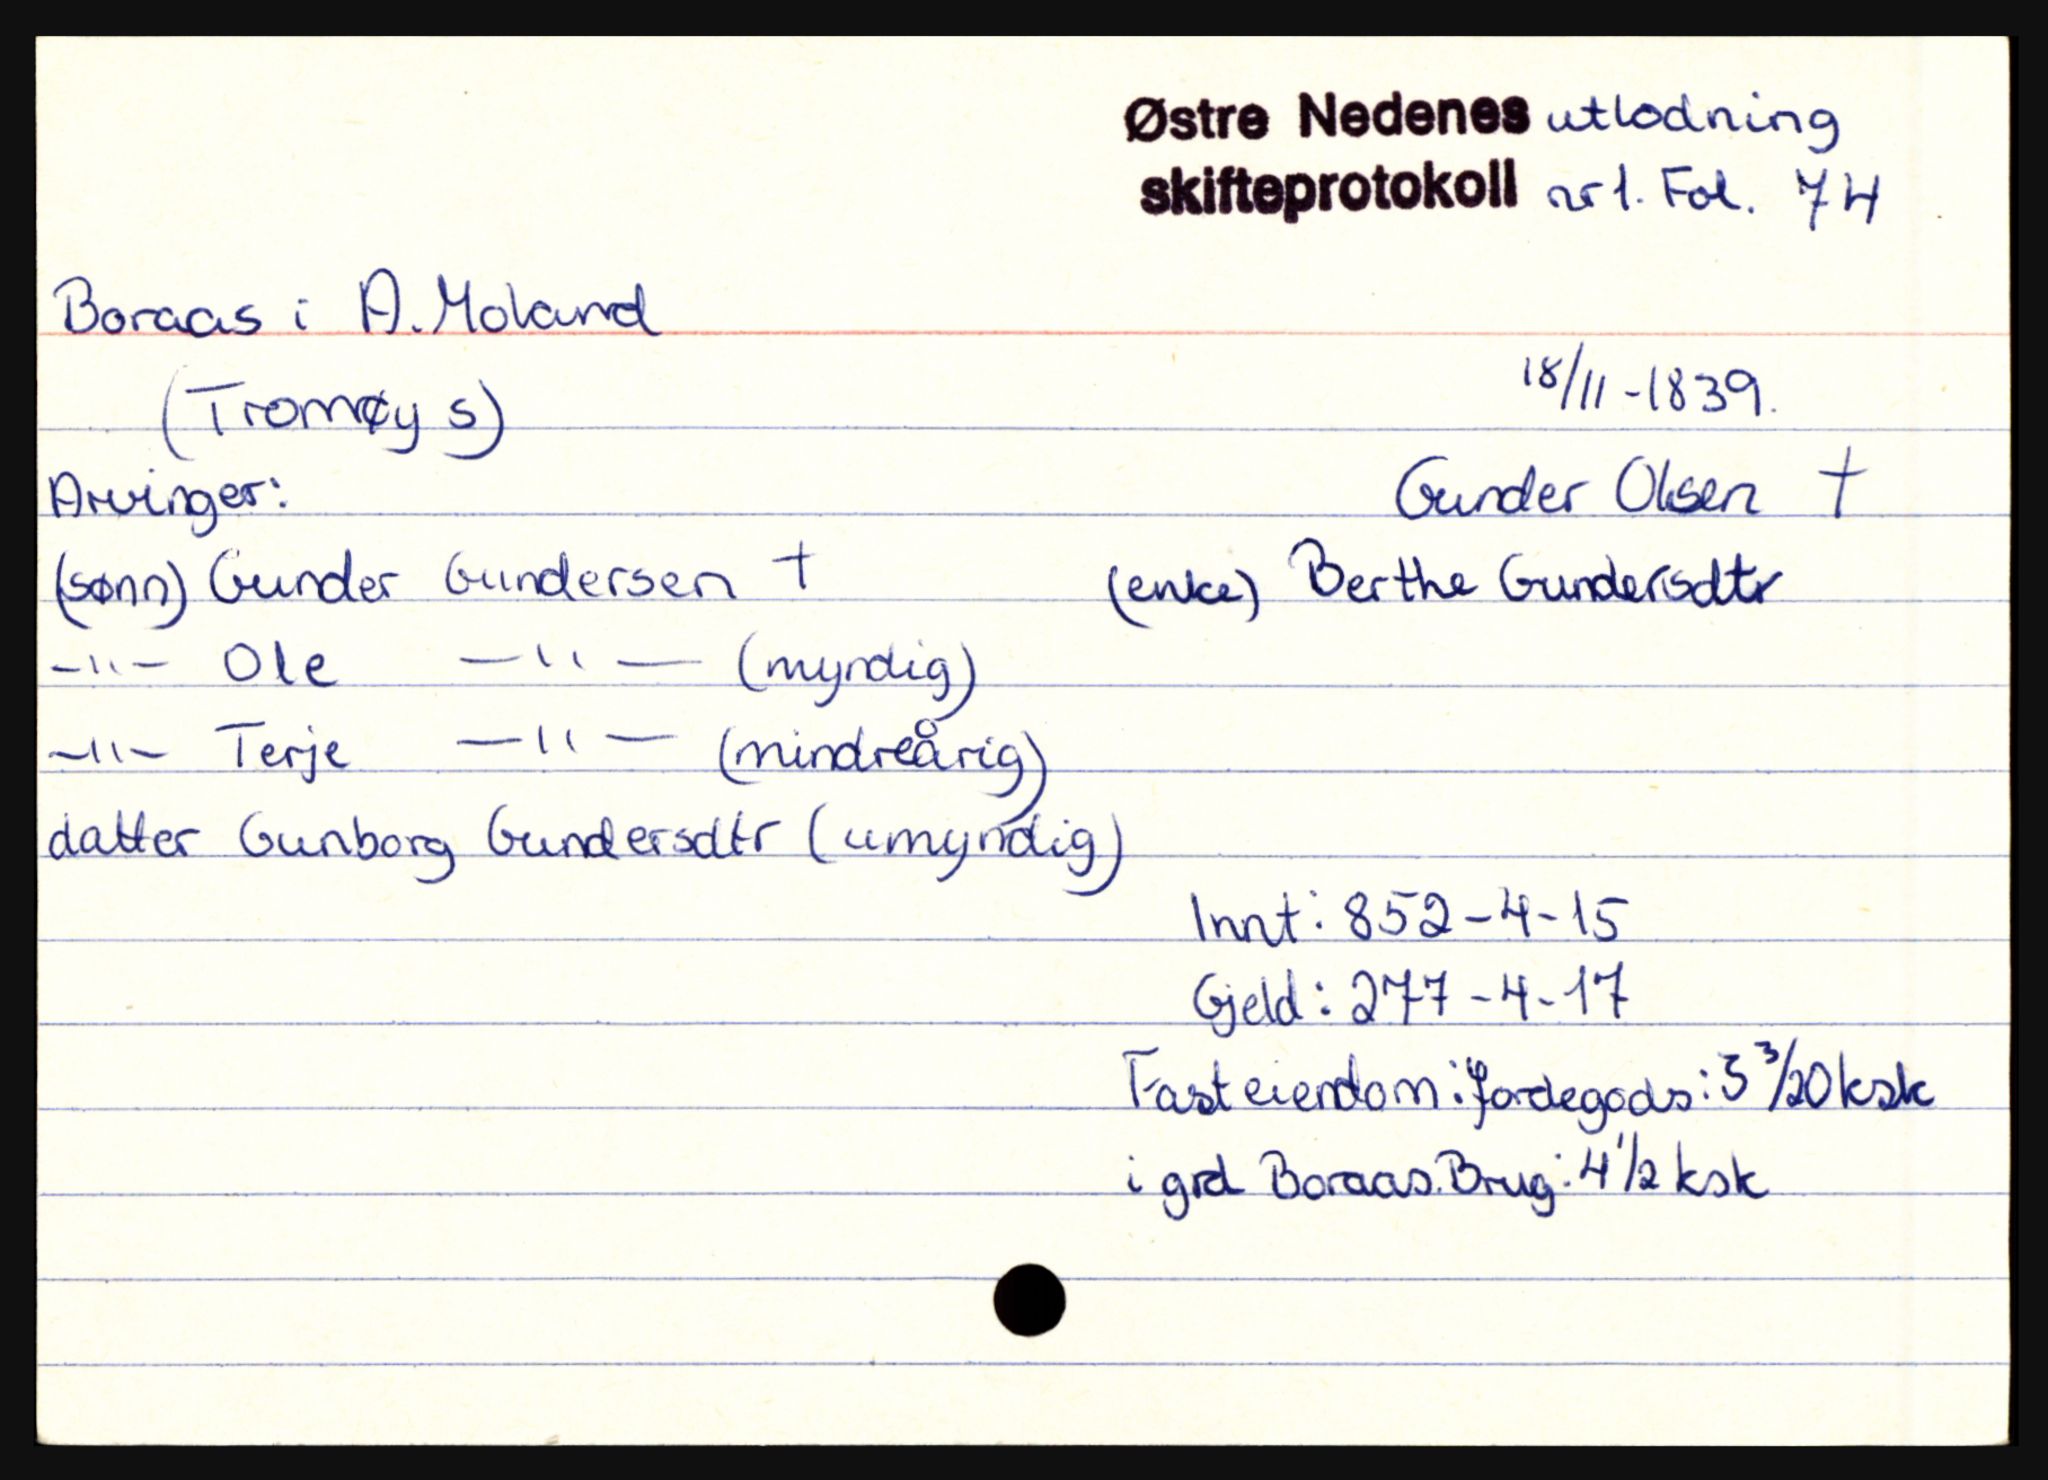 Østre Nedenes utlodning
skifteprotokoll nr 1. Fol. 74
Boraas i A. Moland
(Tromøy s)
18/11 - 1839.
Arvinger:
Gunder Olsen †
(sønn) Gunder Gundersen †
(enke) Berthe Gundersdtr
-"- Ole -"- (myndig)
-"- Terje -"- (mindreårig)
datter Gunborg Gundersdtr (umyndig)
Innt: 852-4-15
Gjeld: 277-4-17
Fast eiendom: jordegods: 5 3/20 ksk
i grd Boraas. Brug: 4 1/2 ksk